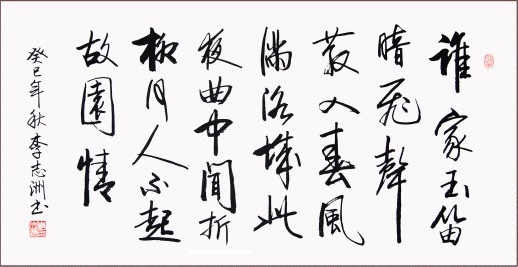 誰家玉笛
暗飛聲
散入春風
滿洛城此
夜曲中聞折
柳何人不起
故園情
癸巳年秋李志洲书